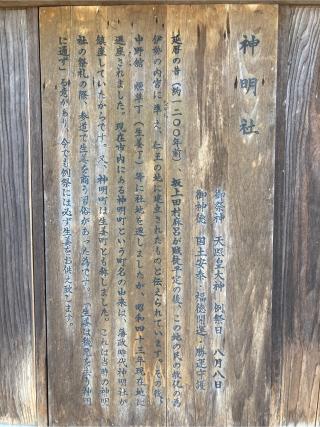 神明社
御祭神 天照皇大神 例祭日 八月八日
御神徳 国土安泰・福徳開運・勝運守護
延暦の昔(約一二〇〇年前)、坂上田村麻呂が賊徒平定の後、この地の民の教化の為
伊勢の内宮に準え、仁王の地に建立されたものと伝えられています。その後、
中野館 煙草丁(生姜丁)等に社地を遷しましたが、昭和四十三年現在地に
遷座されました。現在市内にある神明町という町名の由来は、藩政時代神明社が
鎮座していたからです。又、神明町は生姜町とも称しました。これは当時の神明
社の祭礼の際、参道で生姜を商う習俗があった為です。「生姜は穢悪を去り神明
に通ず」る意があり、今でも例祭には必ず生姜をお供え致します。